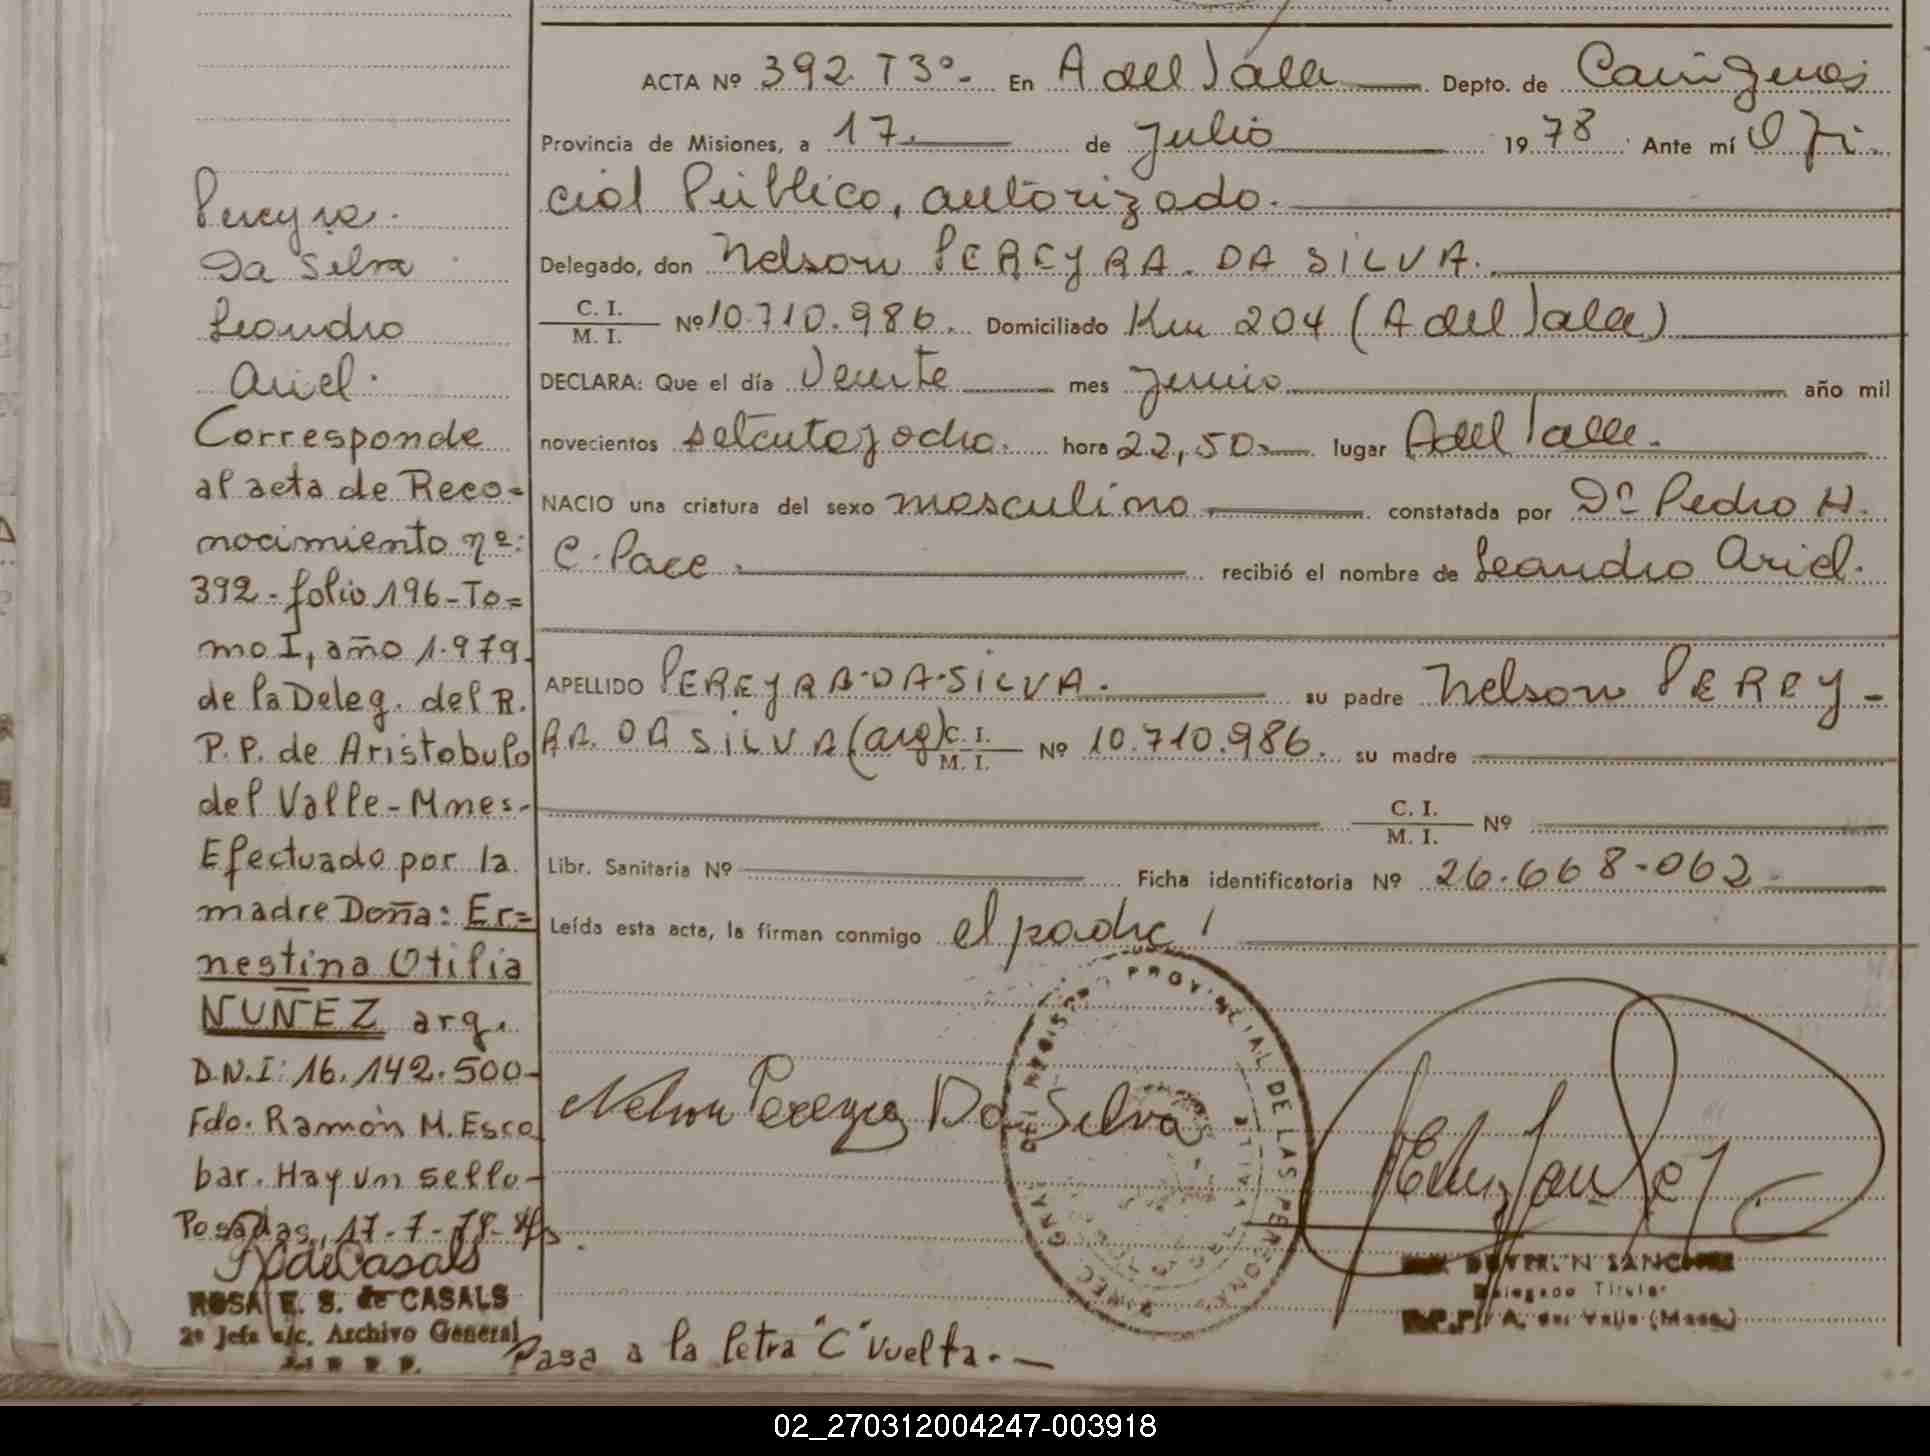 Pereyra
Da Silva
Leandro
Ariel.
Corresponde
al acta de Reco=
nocimiento nº:
392-folio 196-To=
mo I, año 1.979.
de la Deleg. del R.
P.P. de Aristobulo
del Valle-Mnes-
Efectuado por la
madre Doña: Er=
nestina Otilia
NUÑEZ arg.
D.N.I: 16.142.500-
Fdo. Ramón M. Esco
bar. Hay un sello-
Posadas, 17-7-78-
de Casals
ROSA E. S. de CASALS
2º Jefa a/c. Archivo General
ACTA Nº 392 T3º- En A del Valle Depto. de Cainguas
Provincia de Misiones, a 17 de Julio 1978 Ante mí Ofi-
cial Público, autorizado.
Delegado, don Nelson PEREYRA DA SILVA.
C. I.
M. I. Nº 10.710.986. Domiciliado Km 204 (A del Valle)
DECLARA: Que el día Veinte mes Junio año mil
novecientos setenta y ocho. hora 22,50 lugar A del Valle.
NACIO una criatura del sexo masculino constatada por Dr Pedro H.
C. Pace recibió el nombre de Leandro Ariel.
APELLIDO PEREYRA-DA-SILVA. su padre Nelson PEREY-
RA DA SILVA (arg) C. I. M. I. Nº 10.710.986. su madre
C. I.
M. I. Nº
Libr. Sanitaria Nº Ficha identificatoria Nº 26.668-062
Leída esta acta, la firman conmigo el padre
DIREC. GRAL. DEL REGISTRO PROVINCIAL DE LAS PERSONAS
Nelson Pereyra Da Silva
SANCHEZ
Delegado Titular
R.P.P. A. del Valle (Mnes.)
Pasa a la letra "C" Vuelta.-
02_270312004247-003918